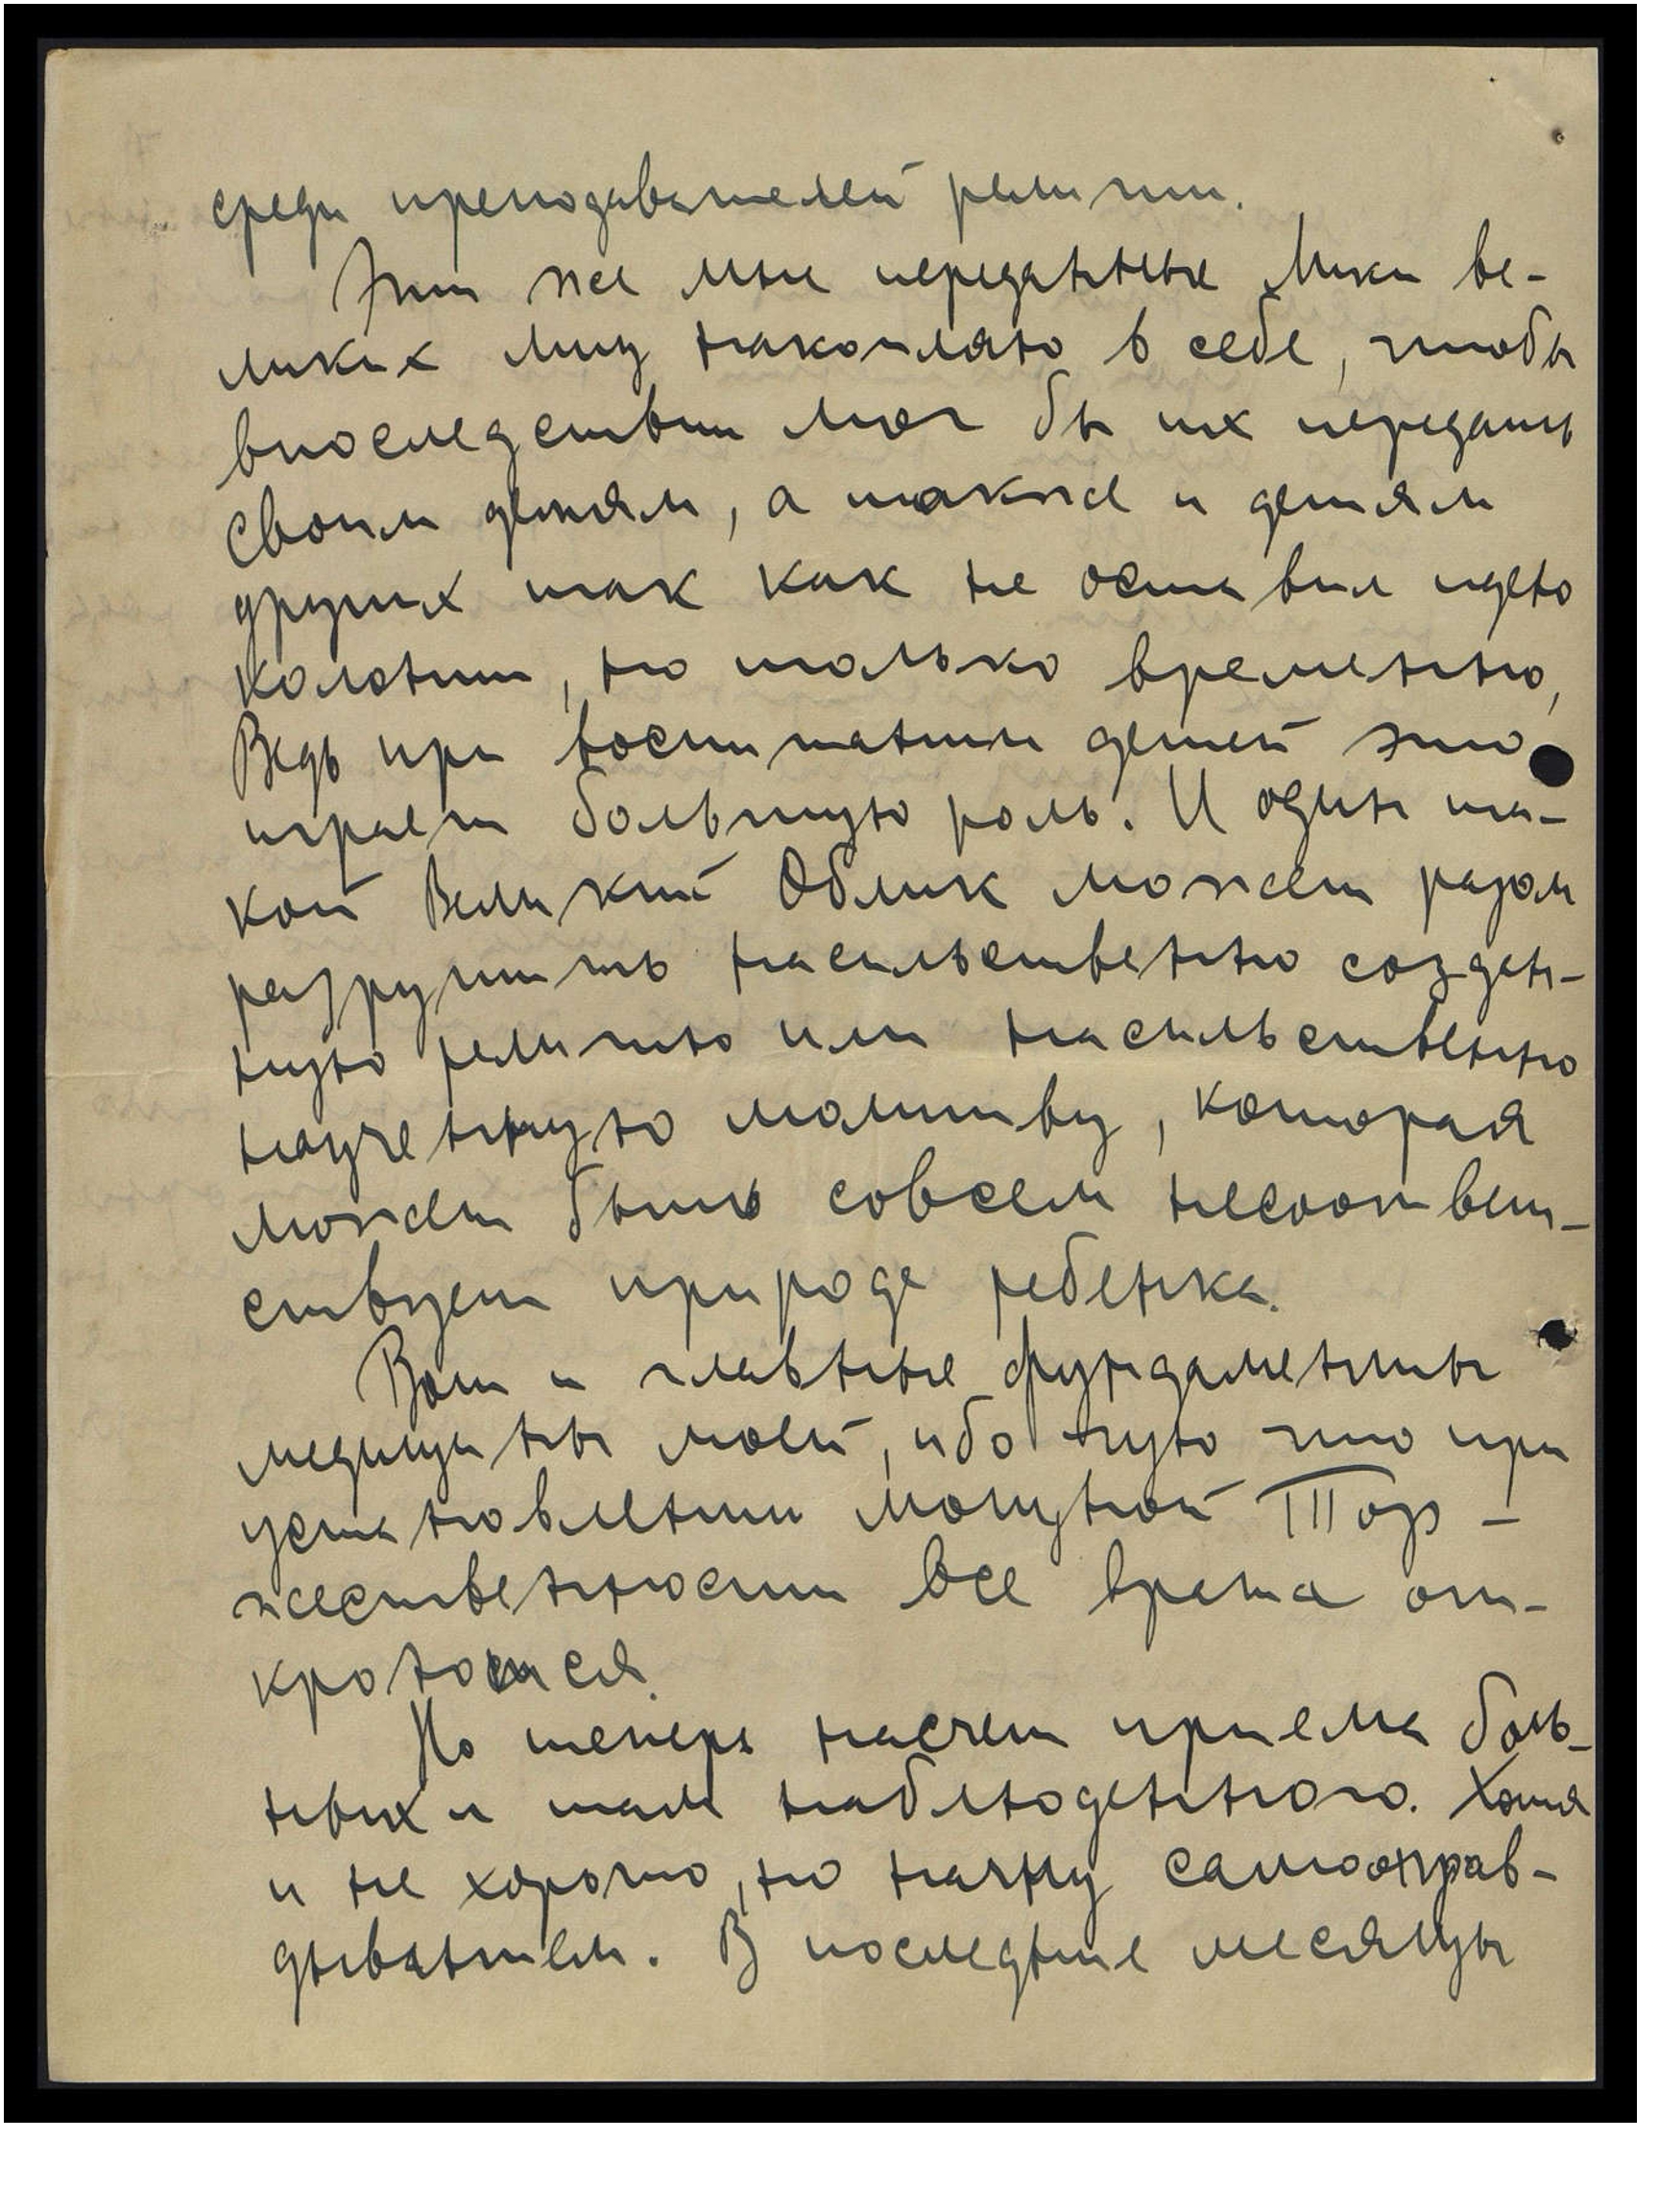 среди преподавателей религии.
Эти же мне переданные Лики ве-
ликих лиц накопляю в себе, чтобы
впоследствии мог бы их передать
своим детям, а также и детям
других так как не оставил идею
колонии, но только временно,
Ведь при воспитании детей это
играет большую роль. И один та-
кой Великий Облик может разом
разрушить насильственно создан-
ную религию или насильственно
наученную молитву, которая
может быть совсем несоответ-
ствует природе ребенка.
Вот и главные фундаменты
медицины моей, ибо чую что при
установлении мощной Тор-
жественности все врата от-
кроются.
Но теперь насчет приема боль-
ных и там наблюденного. Хотя
и не хорошо, но начну самооправ-
дыванием. В последние месяцы